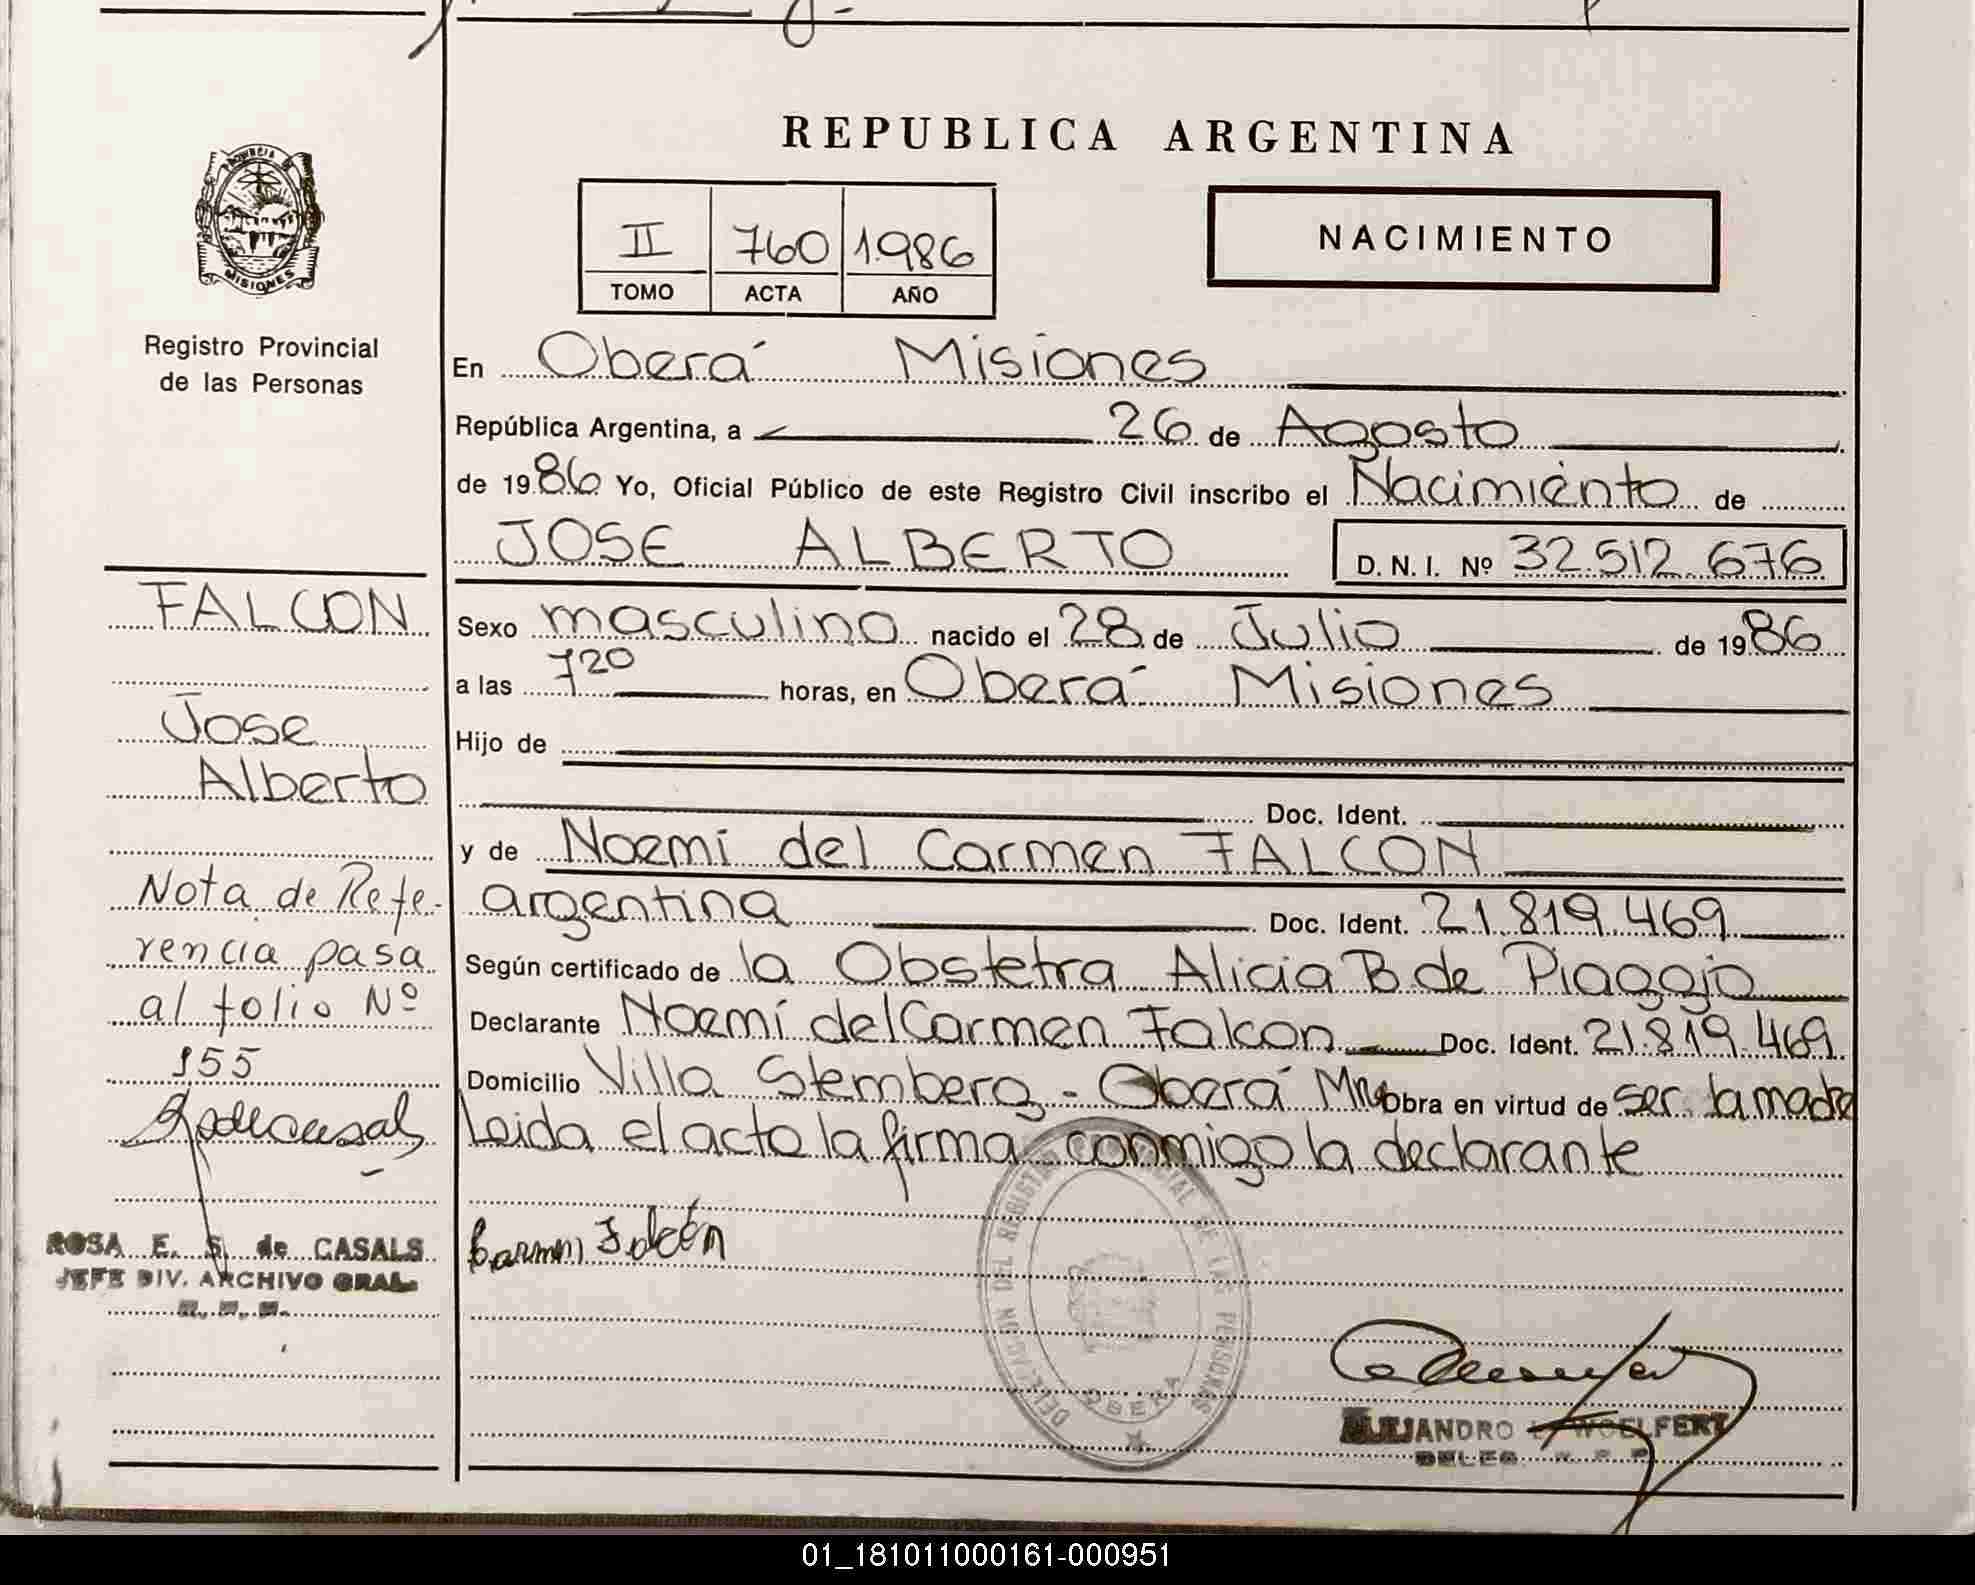 REPUBLICA ARGENTINA
PROVINCIA DE
MISIONES
Registro Provincial
de las Personas
II 760 1.986
TOMO ACTA AÑO
NACIMIENTO
En Oberá Misiones
República Argentina, a 26 de Agosto
de 1986 Yo, Oficial Público de este Registro Civil inscribo el Nacimiento de
JOSE ALBERTO D. N. I. Nº 32.512.676
Sexo masculino nacido el 28 de Julio de 1986
a las 7 20 horas, en Oberá Misiones
Hijo de
Doc. Ident.
y de Noemí del Carmen FALCON
argentina Doc. Ident. 21.819.469
Según certificado de la Obstetra Alicia B. de Piaggio
Declarante Noemí del Carmen Falcon Doc. Ident. 21.819.469
Domicilio Villa Stemberg - Oberá Mnes obra en virtud de ser la madre
Leida el acto la firma conmigo la declarante
Carmen Falcón
FALCON
Jose
Alberto
Nota de Refe-
rencia pasa
al folio Nº
155
ROSA E. S. de CASALS
JEFE DIV. ARCHIVO GRAL.
DELEGACION DEL REGISTRO PROVINCIAL DE LAS PERSONAS
OBERA
ALEJANDRO WOELFERT
DELEG. R. P. P.
01_181011000161-000951